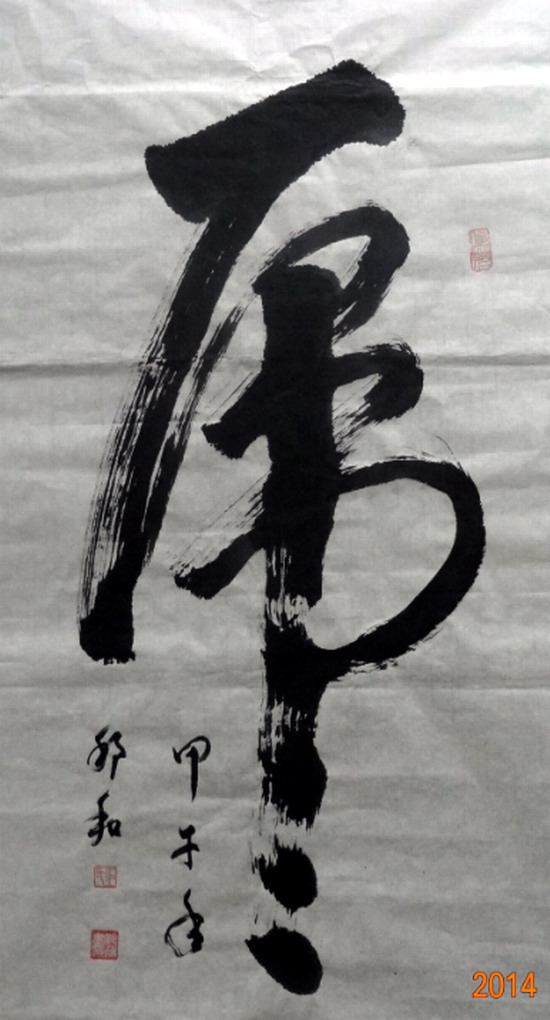 虎
甲午年
和
2014